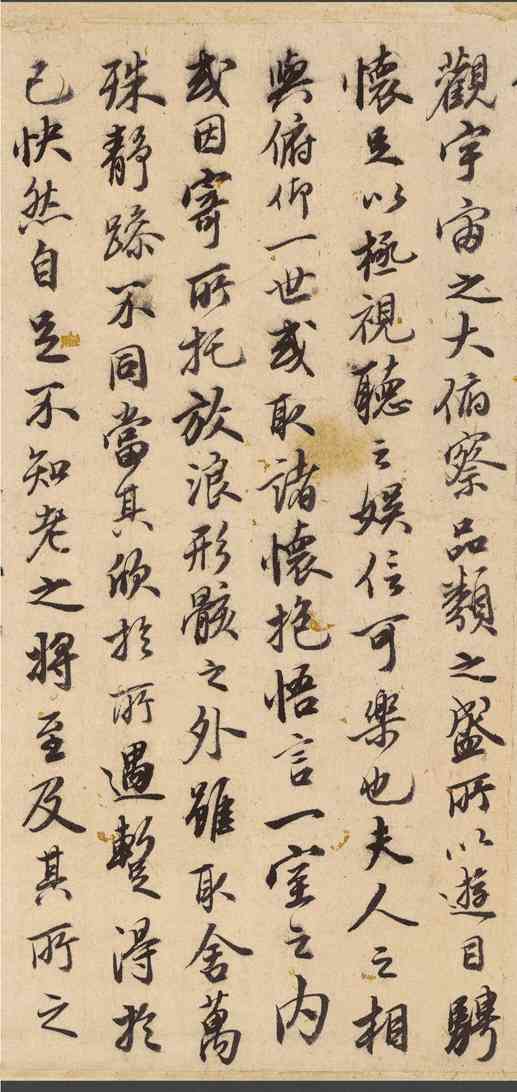 觀宇宙之大俯察品類之盛所以遊目騁
懷足以極視聽之娛信可樂也夫人之相
與俯仰一世或取諸懷抱悟言一室之內
或因寄所托放浪形骸之外雖取舍萬
殊靜躁不同當其欣於所遇蹔得於
己怏然自足不知老之將至及其所之